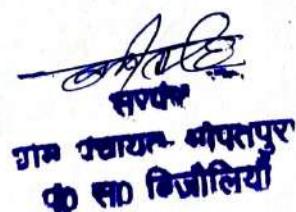 सरपंच
ग्राम पंचायत गोपालपुर
पं० स० बिजौलियाँ